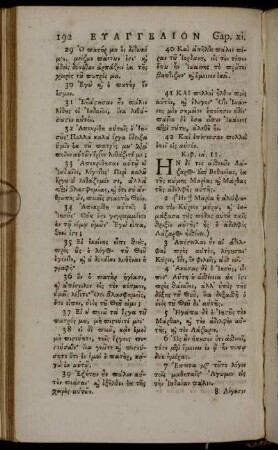 192 ΕΥΑΓΓΕΛΙΟΝ Cap. xi.
29 Ὁ πατήρ μου ὃς δέδωκέ
μοι, μείζων πάντων ἐστί· καὶ
οὐδεὶς δύναται ἁρπάζειν ἐκ τῆς
χειρὸς τοῦ πατρός μου.
30 Ἐγὼ καὶ ὁ πατὴρ ἕν
ἐσμεν.
31 Ἐβάστασαν οὖν πάλιν
λίθους οἱ Ἰουδαῖοι, ἵνα λιθά-
σωσιν αὐτόν.
32 Ἀπεκρίθη αὐτοῖς ὁ Ἰη-
σοῦς· Πολλὰ καλὰ ἔργα ἔδειξα
ὑμῖν ἐκ τοῦ πατρός μου· διὰ
ποῖον αὐτῶν ἔργον λιθάζετέ με;
33 Ἀπεκρίθησαν αὐτῷ οἱ
Ἰουδαῖοι, λέγοντες· Περὶ καλοῦ
ἔργου οὐ λιθάζομέν σε, ἀλλὰ
περὶ βλασφημίας, καὶ ὅτι σὺ ἄν-
θρωπος ὢν, ποιεῖς σεαυτὸν Θεόν.
34 Ἀπεκρίθη αὐτοῖς ὁ
Ἰησοῦς· Οὐκ ἔστι γεγραμμένον
ἐν τῷ νόμῳ ὑμῶν· Ἐγὼ εἶπα,
θεοί ἐστε;
35 Εἰ ἐκείνους εἶπε θεοὺς,
πρὸς οὓς ὁ λόγος τοῦ Θεοῦ
ἐγένετο, καὶ οὐ δύναται λυθῆναι ἡ
γραφή·
36 Ὃν ὁ πατὴρ ἡγίασε,
καὶ ἀπέστειλεν εἰς τὸν κόσμον,
ὑμεῖς λέγετε· Ὅτι βλασφημεῖς,
ὅτι εἶπον, υἱὸς τοῦ Θεοῦ εἰμι;
37 Εἰ οὐ ποιῶ τὰ ἔργα τοῦ
πατρός μου, μὴ πιστεύετέ μοι.
38 εἰ δὲ ποιῶ, κἂν ἐμοὶ
μὴ πιστεύητε, τοῖς ἔργοις πισ-
τεύσατε· ἵνα γνῶτε καὶ πιστεύ-
σητε ὅτι ἐν ἐμοὶ ὁ πατὴρ, κἀ-
γὼ ἐν αὐτῷ.
39 Ἐζήτουν οὖν πάλιν αὐ-
τὸν πιάσαι· καὶ ἐξῆλθεν ἐκ τῆς
χειρὸς αὐτῶν.
40 Καὶ ἀπῆλθε πάλιν πέ-
ραν τοῦ Ἰορδάνου, εἰς τὸν τόπον
ὅπου ἦν Ἰωάννης τὸ πρῶτον
βαπτίζων· καὶ ἔμεινεν ἐκεῖ.
41 Καὶ πολλοὶ ἦλθον πρὸς
αὐτὸν, καὶ ἔλεγον· Ὅτι Ἰωάν-
νης μὲν σημεῖον ἐποίησεν οὐδέν·
πάντα δὲ ὅσα εἶπεν Ἰωάννης
περὶ τούτου, ἀληθῆ ἦν.
42 Καὶ ἐπίστευσαν πολλοὶ
ἐκεῖ εἰς αὐτόν.
Κεφ. ια. 11.
ΗΝ δέ τις ἀσθενῶν Λά-
ζαρος ἀπὸ Βηθανίας, ἐκ
τῆς κώμης Μαρίας καὶ Μάρθας
τῆς ἀδελφῆς αὐτῆς.
2 (Ἦν δὲ Μαρία ἡ ἀλείψα-
σα τὸν Κύριον μύρῳ, καὶ ἐκ-
μάξασα τοὺς πόδας αὐτοῦ ταῖς
θριξὶν αὑτῆς, ἧς ὁ ἀδελφὸς
Λάζαρος ἠσθένει.)
3 Ἀπέστειλαν οὖν αἱ ἀδελ-
φαὶ πρὸς αὐτὸν, λέγουσαι·
Κύριε, ἴδε, ὃν φιλεῖς, ἀσθενεῖ.
4 Ἀκούσας δὲ ὁ Ἰησοῦς, εἶ-
πεν· Αὕτη ἡ ἀσθένεια οὐκ ἔστι
πρὸς θάνατον, ἀλλ' ὑπὲρ τῆς
δόξης τοῦ Θεοῦ, ἵνα δοξασθῇ ὁ
υἱὸς τοῦ Θεοῦ δι' αὐτῆς.
5 Ἠγάπα δὲ ὁ Ἰησοῦς τὴν
Μάρθαν, καὶ τὴν ἀδελφὴν αὐ-
τῆς, καὶ τὸν Λάζαρον.
6 Ὡς οὖν ἤκουσεν ὅτι ἀσθενεῖ,
τότε μὲν ἔμεινεν ἐν ᾧ ἦν τόπῳ
δύο ἡμέρας.
7 Ἔπειτα μετὰ τοῦτο λέγει
τοῖς μαθηταῖς· Ἄγωμεν εἰς
τὴν Ἰουδαίαν πάλιν.
8 Λέγουσιν